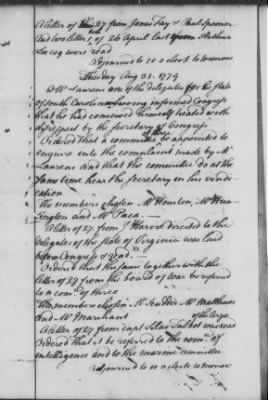 A letter of 27 from Jonas Fay & Paul Spooner
and two letters of 26 April last from Arthur
Lee esq were read
Adjourned to 10 o Clock to morrow
Tuesday Aug 31. 1779
Mr Laurens one of the delegates for the state
of South Carolina having informed Congress
that he had conceived himself treated with
disrespect by the secretary of Congress
Ordered that a committee of three be appointed to
enquire into the complaint made by Mr
Laurens and that the committee do at the
same time hear the secretary in his vindi
cation
The members chosen Mr Houston, Mr Hun-
tington and Mr Paca. —
A letter of 27. from J Harvie directed to the
delegates of the state of Virginia was laid
before Congress & read. —
Ordered that the same together with the
letter of 27 from the board of war be referred
to a comee of three
The members chosen Mr Scudder Mr Matthews
and Mr Marchant
A letter of 27 from capt Silas Talbot was read
Ordered that it be referred to the comee of
intelligence and to the marine committee
Adjourned to 10 o Clock to morrow